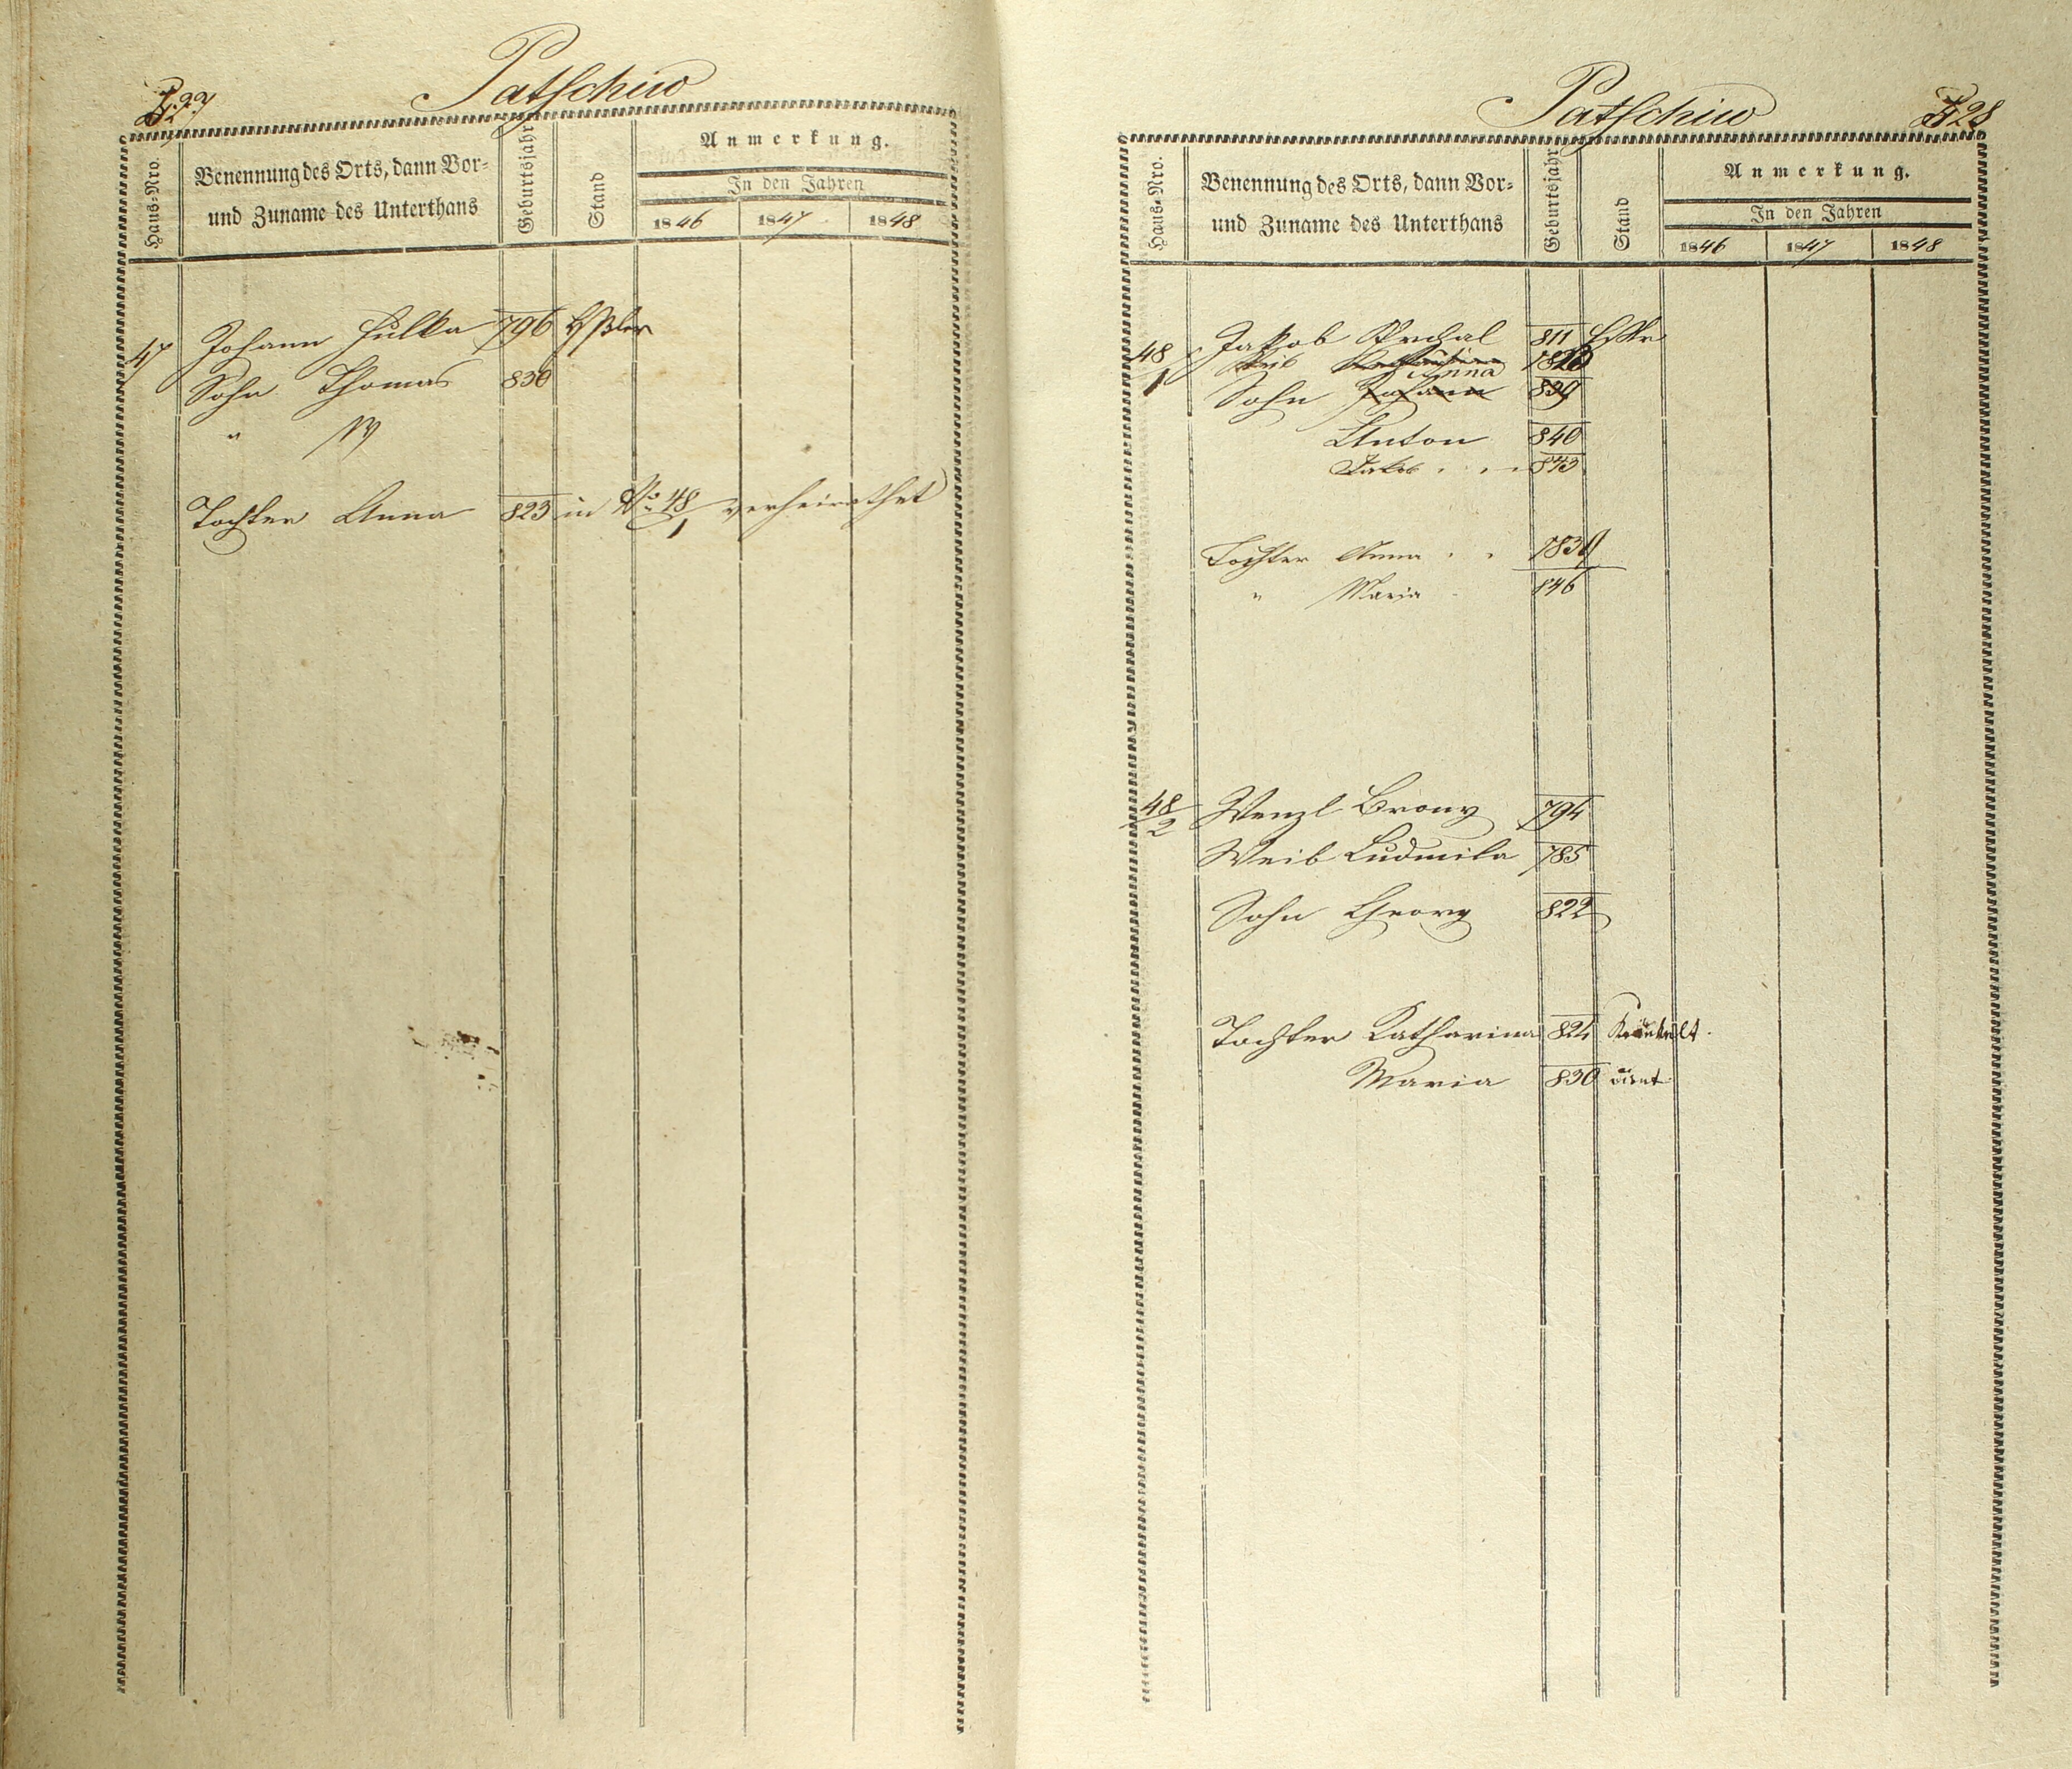 Patschiw
Haus-Nro.
Benennung des Orts, dann Vor-
und Zuname des Unterthans
Geburtsjahr
Stand
Anmerkung.
In den Jahren
1846 1847 1848
47 Johann Hulka 796
Sohn Thomas 830
"
Tochter Anna 823 in No 48/1 verheirathet
Patschiw
Haus-Nro.
Benennung des Orts, dann Vor-
und Zuname des Unterthans
Geburtsjahr
Stand
Anmerkung.
In den Jahren
1846 1847 1848
48/1 Jakob 811
Weib Anna
Sohn Johann 839
Anton 840
Jakob 843
Tochter Anna 1839
" Maria 846
48/2 Wenzl Brony 794
Weib Ludmila 785
Sohn Georg 822
Tochter Katharina 824
Maria 830 dient